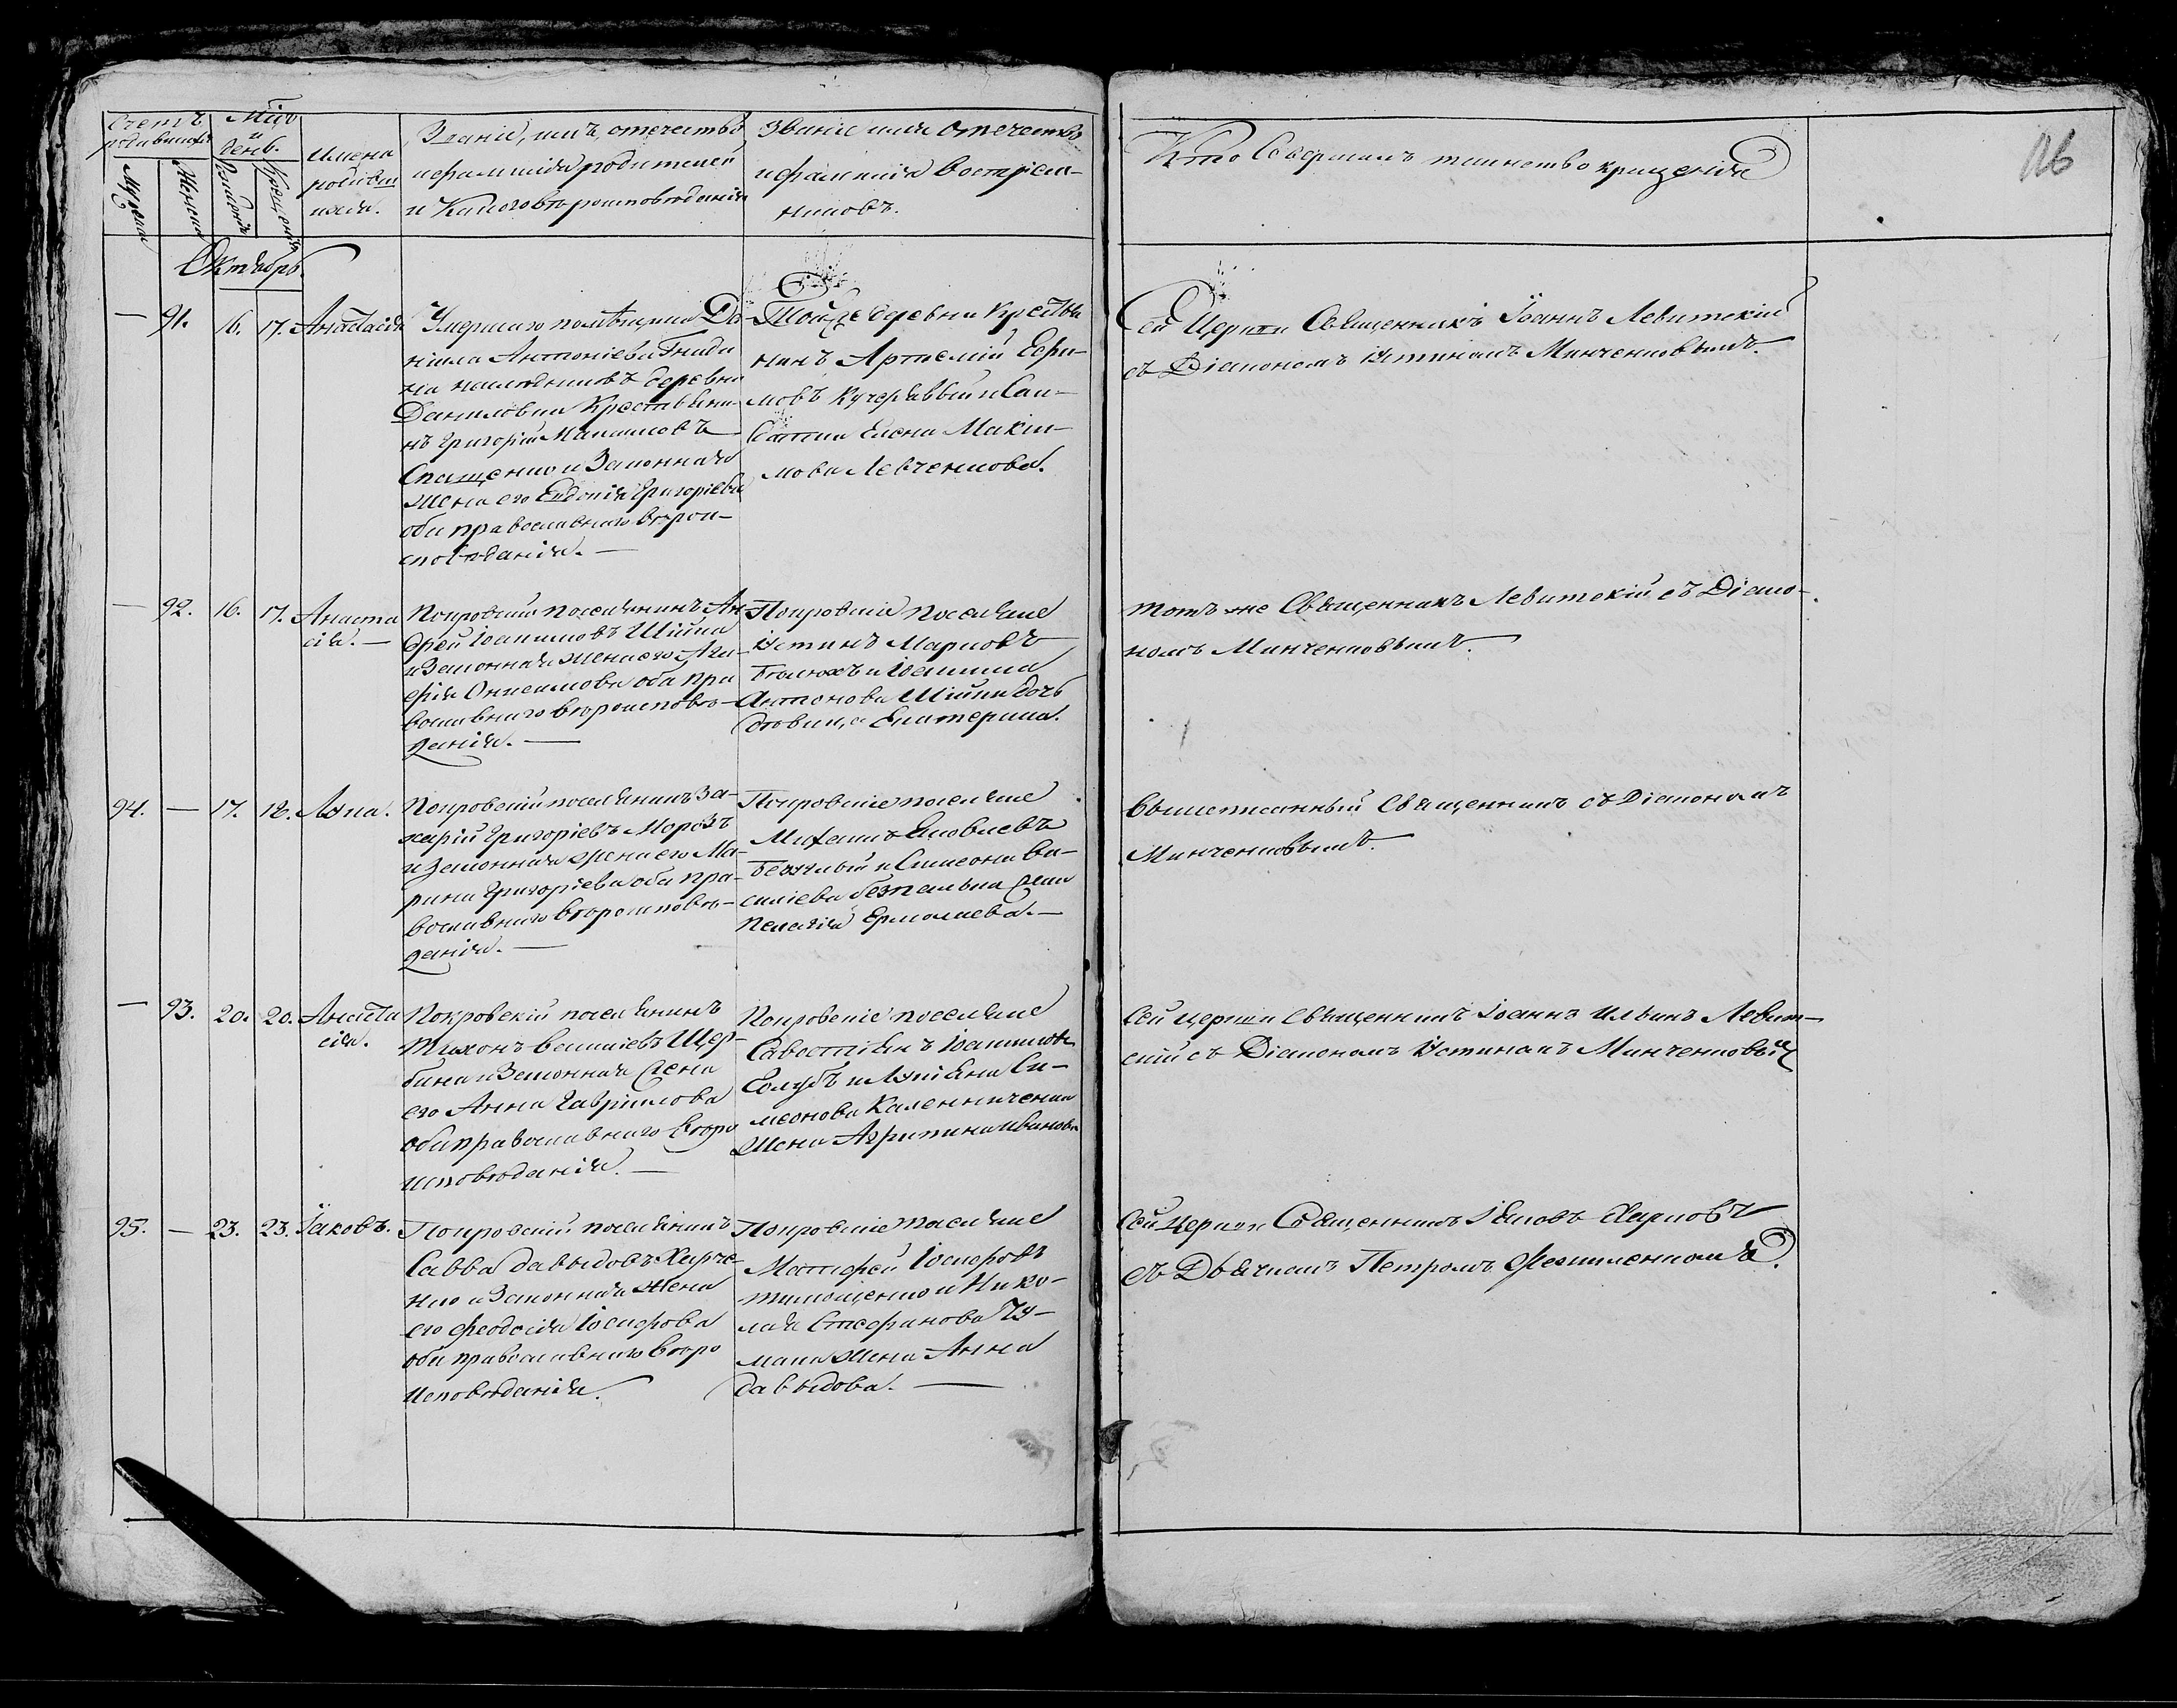 Счетъ родившихся
Мужеска
Женска
Мцъ и день.
Рожденія
Крещенія
Имена
родивши
хся.
Званіе, имя, отечество
и фамилія родителей
и какого вѣроисповѣданія
Званіе имя отечество
и фамилія воспріем-
никовъ.
Кто совершалъ таинство крещенія
116
Октябрь.
— 91. 16. 17. Анастасія
Умершаго помѣщика Да-
ніила Антоніева
на наслѣдниковъ деревни
Даниловки крестьяни-
нъ Григорій Максимовъ
и законная
жена его Евдокія Григоріева
оба православнаго вѣрои-
сповѣданія. —
Той же деревни крестья
нинъ Артемій Ефи-
мовъ Кучерявый и Сал-
Елена Макси-
мова Левченкова.
Сей Церкви Священникъ Іоаннъ Левитскій
съ Діакономъ Устиномъ Минченковымъ.
— 92. 16. 17. Анаста
сія. —
Покровскій поселянинъ Ан-
дрей Іоакимовъ Шійка
и законная жена его Ага-
фія Онисимова оба пра
вославнаго вѣроисповѣ-
данія. —
Покровскіе поселяне
Устинъ Марковъ
и Іоакима
Антонова Шійки дочь
дѣвица Екатерина.
тотъ же Священникъ Левитскій съ Діако-
номъ Минченковымъ.
94. — 17. 18. Лука.
Покровскій поселянинъ За-
харій Григоріевъ Морозъ
и законная жена его Ма-
рина Григоріева оба пра-
вославнаго вѣроисповѣ-
данія. —
Покровскіе поселяне
Михаилъ Яковлевъ
и Симеона Ва-
силіева Безпалька жена
Пелагія Ермолаева. —
Вышеписанный Священникъ съ Діакономъ
Минченковымъ.
— 93. 20. 20. Анаста
сія.
Покровскій поселянинъ
Тихонъ Василіевъ Щер-
бина и законная жена
его Анна Гаврилова
оба православнаго вѣро
исповѣданія. —
Покровскіе поселяне
Савостіянъ Іоакимовъ
Голубъ и Лукіяна Си-
меонова Каленниченка
жена Агрипина Иванова
Сей церкви Священникъ Іоаннъ Ильинъ Левит-
скій съ Діакономъ Устиномъ Минченковымъ
95. — 23. 23. Іаковъ.
Покровскій поселянинъ
Савва Давыдовъ Харче-
нко и законная жена
его Феодосія Іосифова
оба православнаго вѣро
исповѣданія.
Покровскіе поселяне
Матфей Іосифовъ
Тимошенко и Нико-
лая Стефанова Чу-
мака жена Анна
Давыдова. —
Сей Церкви Священникъ Іаковъ Карповъ
съ Дьячкомъ Петромъ